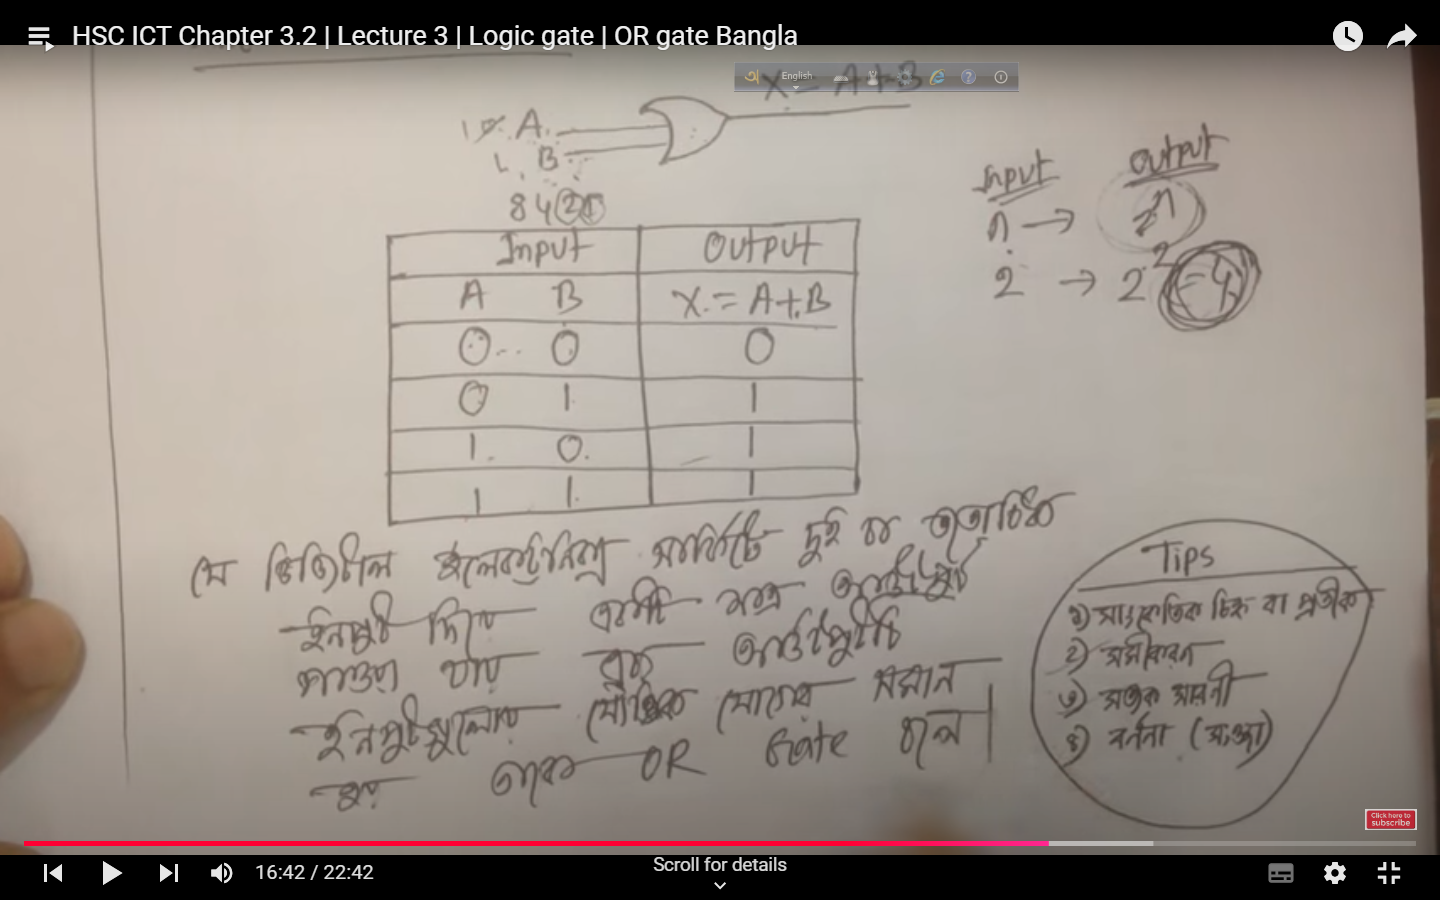 HSC ICT Chapter 3.2 | Lecture 3 | Logic gate | OR gate Bangla
English
X = A+B
A
B
84
Input Output
n → 2ⁿ
2 → 2² = 4
Input Output
A B X = A+B
0 0 0
0 1 1
1 0 1
1 1 1
যে ডিজিটাল ইলেকট্রনিক্স সার্কিটে দুই বা ততোধিক
ইনপুট দিয়ে একটি মাত্র আউটপুট
পাওয়া যায় এবং আউটপুটটি
ইনপুটগুলোর যৌক্তিক যোগের সমান
হয় তাকে OR Gate বলে।
Tips
১) সাংকেতিক চিহ্ন বা প্রতীক
২) সমীকরণ
৩) সত্যক সারণী
৪) বর্ননা (সংজ্ঞা)
Click here to
subscribe
16:42 / 22:42
Scroll for details